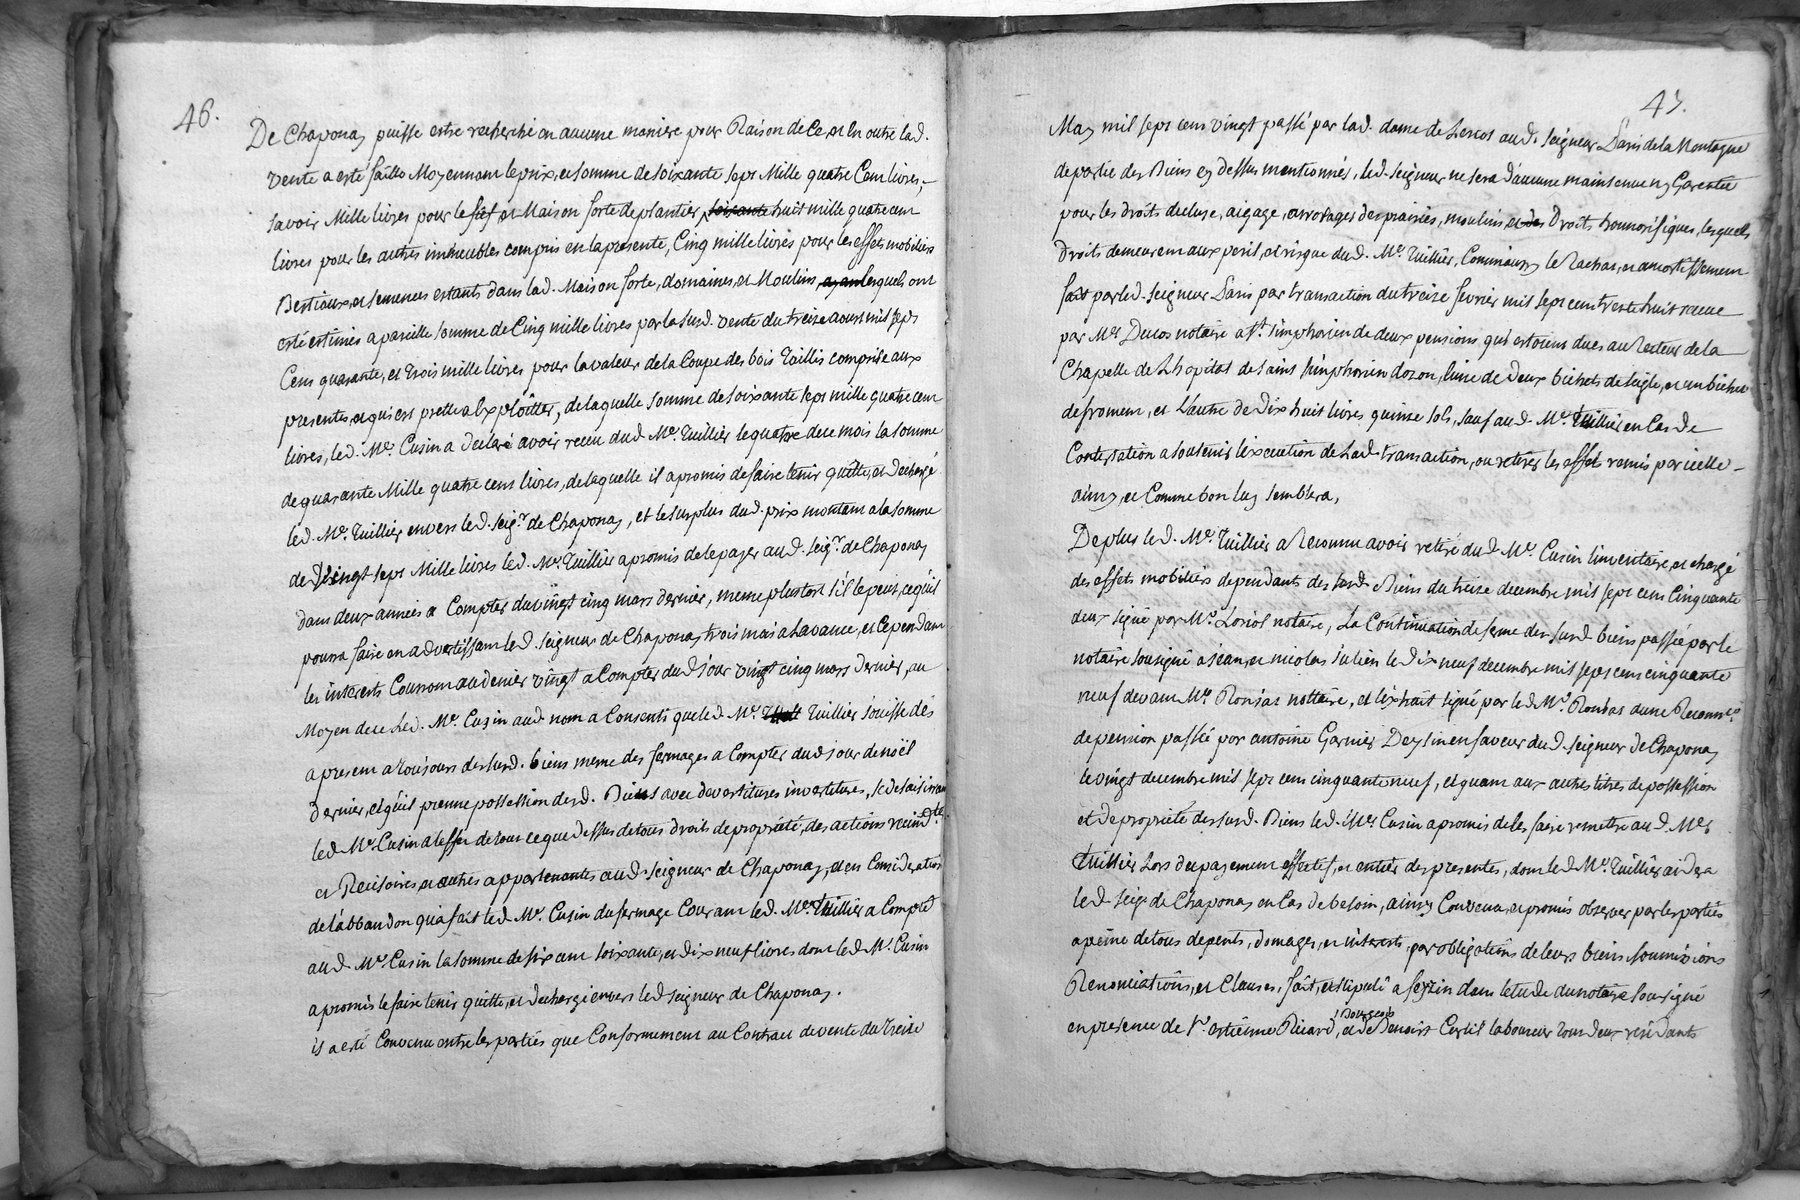 46.
De Chaponay puisse estre recherché en aucune maniere pour Raison de Ce, et en outre lad.
vente a esté faitte Moyennant le prix, et somme de soixante sept Mille quatre Cent livres,
savoir Mille livres pour le fief et Maison forte de plantier, soixante huit mille quatre cent
livres pour les autres immeubles compris en la presente, Cinq mille livres pour les effets mobiliers
Bestiaux, et semences estants dans lad. Maison forte, domaines, et Moulins, ayant lesquels ont
esté estimés a pareille somme de Cinq mille livres par la susd. vente du treize aoust mil sept
Cent quarante, et trois mille livres pour la valeur de la Coupe des bois taillis comprise aux
presentes, et qui est prette a Exploitter, de laquelle somme de soixante sept mille quatre cent
livres, led. Me. Cusin a declaré avoir receu dud. Me. Tuillier le quatre de ce mois la somme
de quarante Mille quatre cent livres, de laquelle il a promis de faire tenir quitte, et dechargé
led. Me. Tuillier envers led. seigr. de Chaponay, et le surplus dud. prix montant a la somme
de vingt sept Mille livres led. Me. Tuillier a promis de le payer aud. seigr. de Chaponay
dans deux années a Compter du vingt cinq mars dernier, meme plustost s'il le peut, ce qu'il
pourra faire en advertissant led. seigneur de Chaponay trois mois a Lavance, et Cependant
les interests Courront au denier vingt a Compter dud. Jour vingt cinq mars dernier, au
Moyen de ce Led. Me. Cusin aud. nom a Consenti que led. Me. Tuillier Jouisse dés
a present a toujours des susd. biens meme des fermages a Compter dud. jour de noël
dernier, et qu'il prenne possession desd. Biens avec devestitures investitures, se desaisissant
led. Me. Cusin a l'effet de tout ce que dessus de tous droits de proprieté, des actions rescindte.
et Recisoires, et autres appartenantes aud. seigneur de Chaponay, et en Consideration
de l'abbandon qu'a fait led. Me. Cusin du fermage Courant led. Me. Tuillier a Compté
aud. Me. Cusin la somme de six cent soixante, et dix neuf livres dont led. Me. Cusin
a promis le faire tenir quitte, et dechargé envers led. seigneur de Chaponay.
il a eté Convenu entre les parties que Conformement au Contract de vente du treize
47.
May mil sept cent vingt passé par lad. dame de Lescot aud. seigneur Paris de la Montagne
de partie des Biens cy dessus mentionnés, led. seigneur ne sera d'aucune maintenue ny Garentie
pour les droits decluse, aigage, arrosages des prairies, moulins et des Droits honnorifiques, lesquels
droits demeurent aux peril, et risque dud. Me. Tuillier, Comme aussy le Rachat, et amortissement
fait par led. seigneur Paris par transaction du treize fevrier mil sept cent trente huit receue
par Me. Ducos notaire a St. simphorien de deux pensions qui estoient dues au Recteur de la
Chapelle de Lhopital de saint simphorien dozon, l'une de Deux bichets de seigle, et un bichet
de froment, et L'autre de Dix huit livres quinze sols, sauf aud. Me. Tuillier en Cas de
Contestation a soutenir l'execution de Lad. transaction, ou retirer les effets remis par icelle
ainsy, et Comme bon luy semblera,
De plus led. Me. Tuillier a Reconnu avoir retiré dud. Me. Cusin l'inventaire, et chargé
des effets mobiliers dependants des susd. Biens du treize decembre mil sept cent Cinquante
deux signé par Me. Loriol notaire, La Continuation de ferme des susd. biens passée par le
notaire sousigné a Jean, et nicolas Julien le dix neuf decembre mil sept cent cinquante
neuf devant Me. Ronsat nottaire, et l'extrait signé par led. Me. Ronsat d'une Reconnce.
de pension passée par antoine Garnier Deysin en faveur dud. seigneur de Chaponay
le vingt decembre mil sept cent cinquante neuf, et quant aux autres titres de possession
et de proprieté des susd. Biens led. Me. Cusin a promis de les faire remettre aud. Me.
Tuillier Lors du payement effectif, et entier des presentes, dont led. Me. Tuillier aidera
led. seigr. de Chaponay en Cas de besoin, ainsy Convenu, et promis observer par les parties
a peine de tous depents, domages, et interests, par obligations de leurs biens soumissions
Renonciations, et Clauses, fait, et stipulé a feyzin dans l'etude du notaire sousigné
en presence de sr. estienne Ricard, bourgeois et de Benoist Curtil laboureur tous deux residants